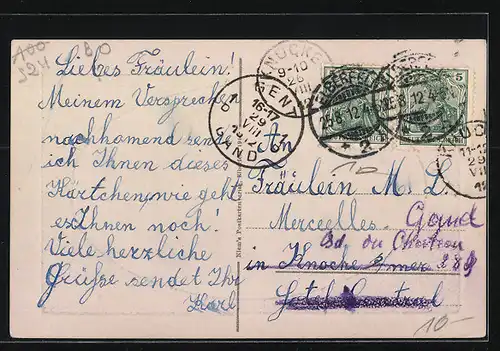 100
S24
Liebes Fräulein!
Meinem Versprechen
nachkomend sende
ich Ihnen dieses
Kärtchen, wie geht
es Ihnen noch!
Viele herzliche
Grüsse sendet Ihr
Karl
KNOCKE
9-10
26
VIII
GENT
16-17
29
VIII
1D
GAND
26.8.12
* 2
5
26.8.12
11-12
29
VIII
An
Fräulein M. L.
Mercelles. Gand
Bd. du Chateau
in Knocke s/mer 289
Hotel Central
10-